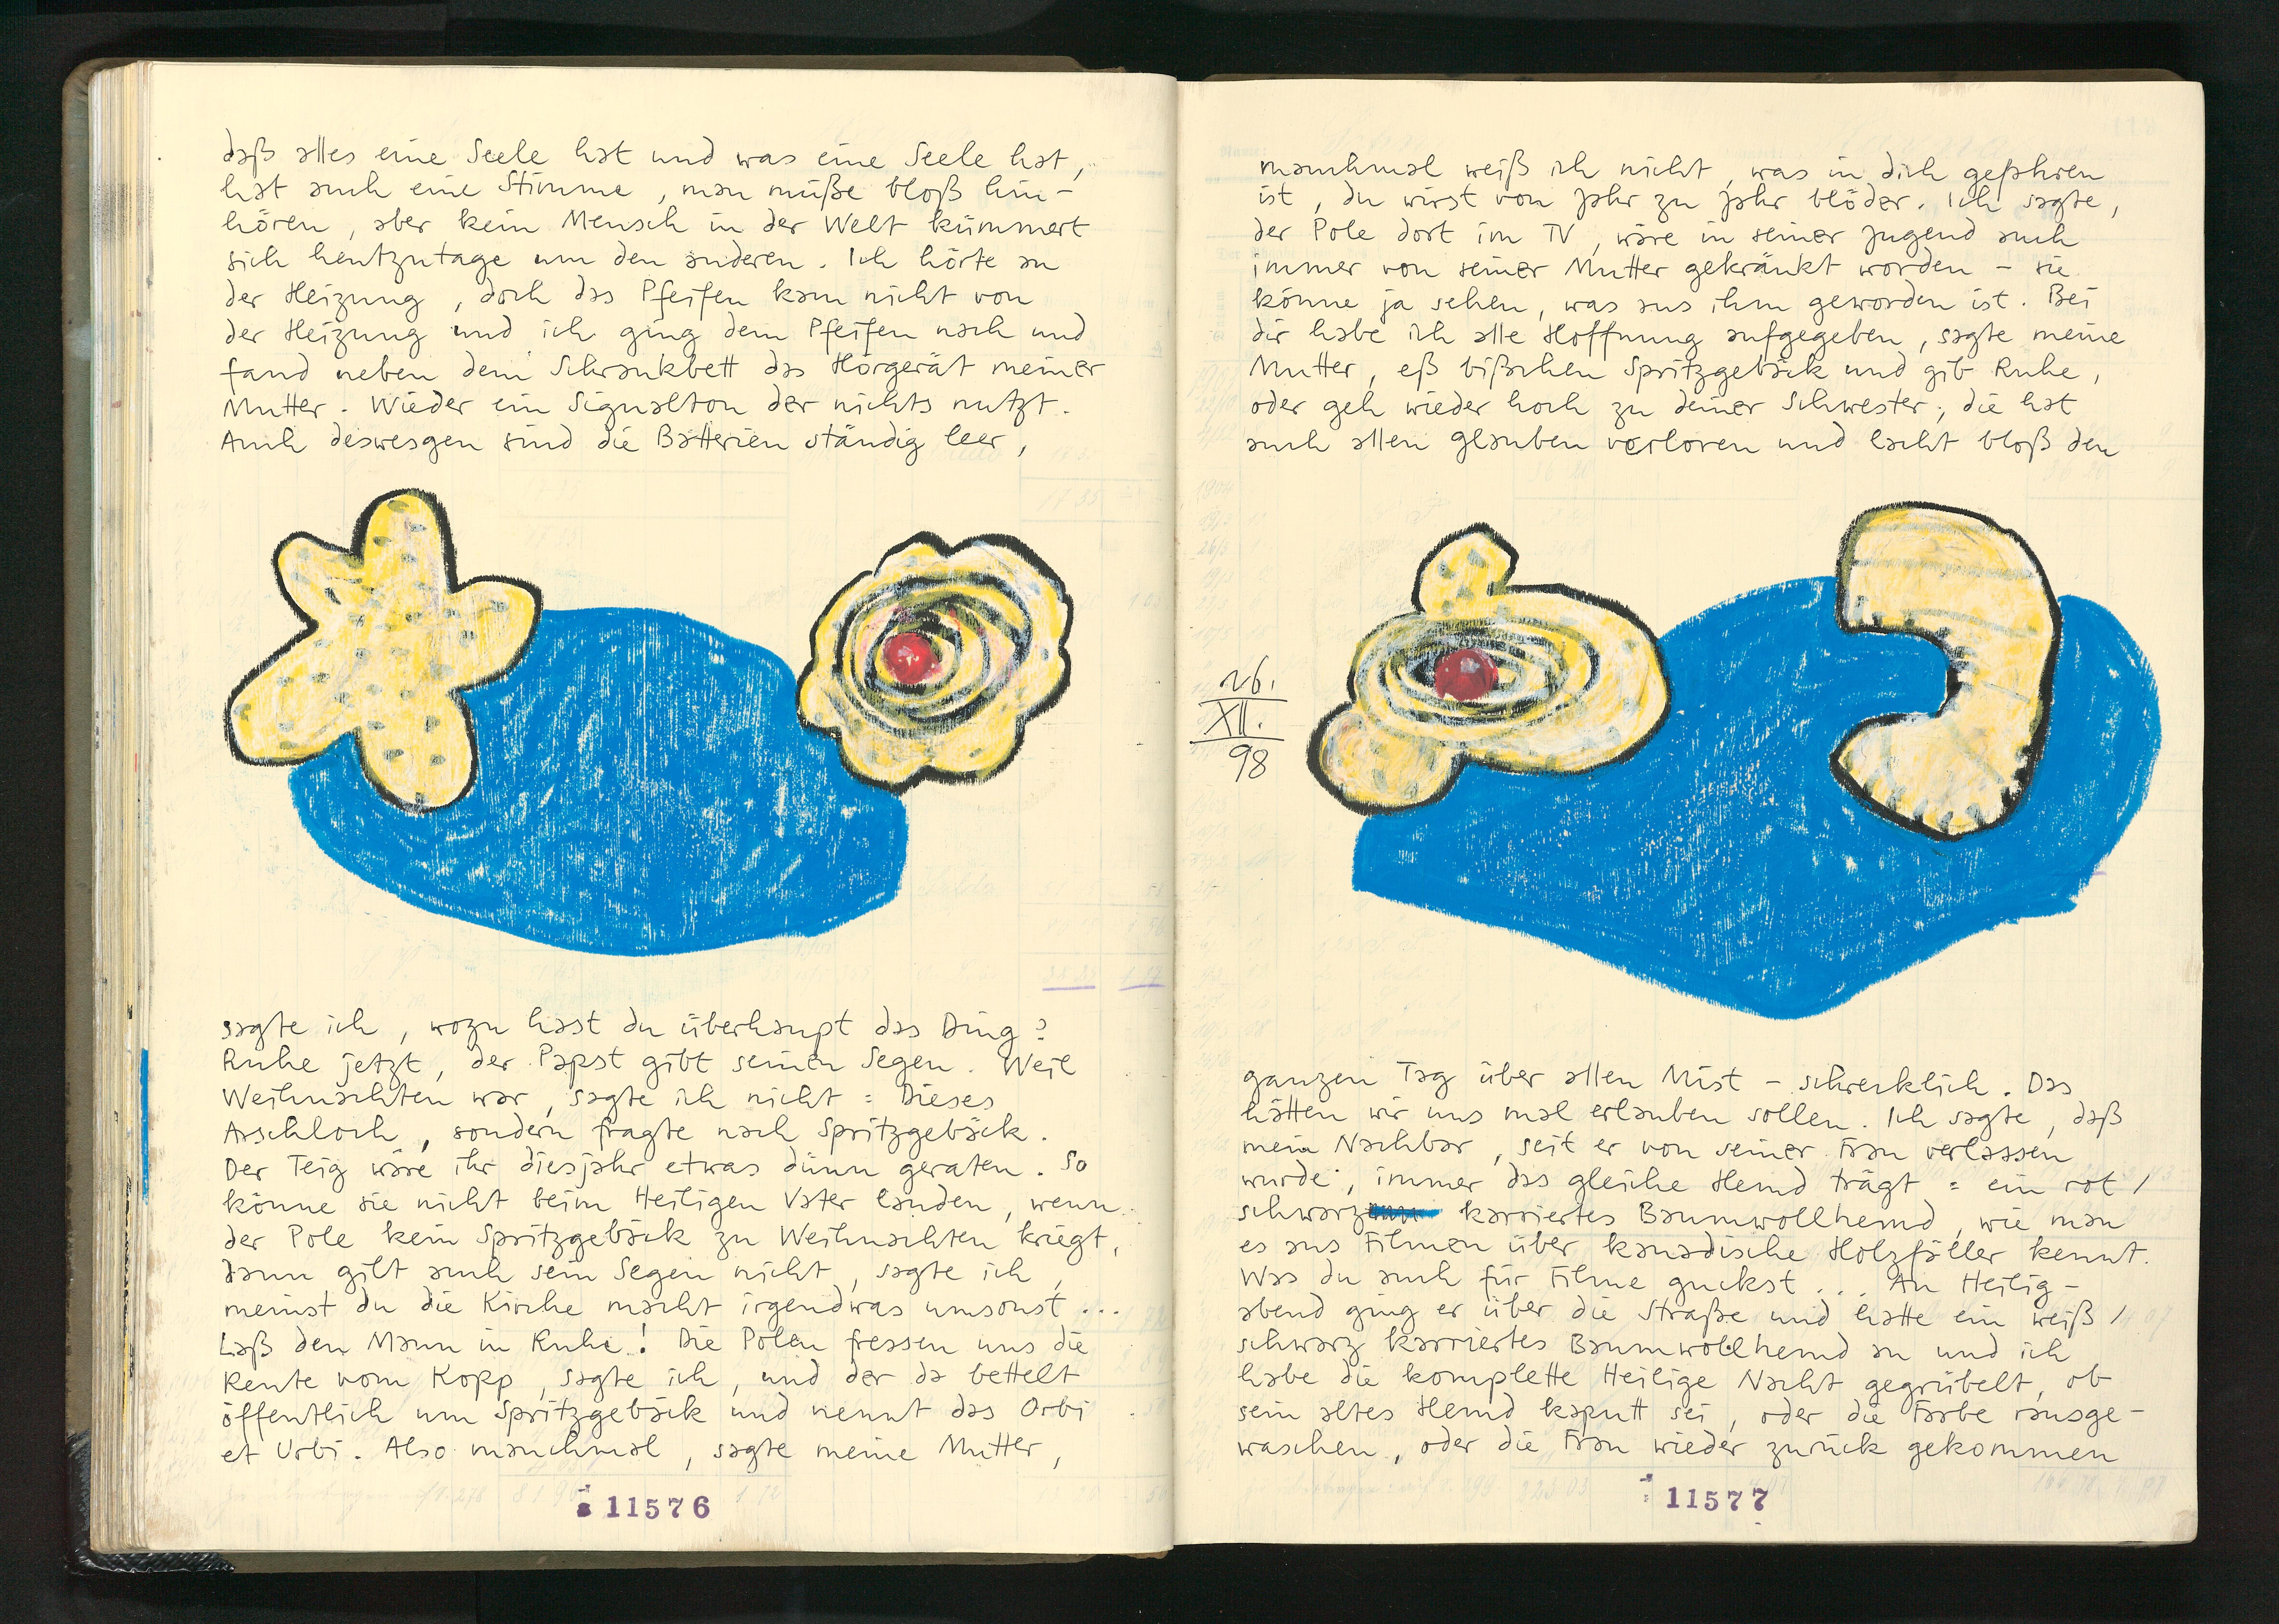 daß alles eine Seele hat und was eine Seele hat,
hat auch eine Stimme, man müße bloß hin-
hören, aber kein Mensch in der Welt kümmert
sich heutzutage um den anderen. Ich hörte an
der Heizung, doch das Pfeifen kam nicht von
der Heizung und ich ging dem Pfeifen nach und
fand neben dem Schrankbett das Hörgerät meiner
Mutter. Wieder ein Signalton der nichts nutzt.
Auch deswesgen sind die Batterien ständig leer,
sagte ich, wozu hast du überhaupt das Ding?
Ruhe jetzt, der Papst gibt seinen Segen. Weil
Weihnachten war, sagte ich nicht: Dieses
Arschloch, sondern fragte nach Spritzgebäck.
Der Teig wäre ihr diesjahr etwas dünn geraten. So
könne sie nicht beim Heiligen Vater landen, wenn
der Pole kein Spritzgebäck zu Weihnachten kriegt,
dann gilt auch sein Segen nicht, sagte ich,
meinst du die Kirche macht irgendwas umsonst...
Laß den Mann in Ruhe! Die Polen fressen uns die
Rente vom Kopp, sagte ich, und der da bettelt
öffentlich um Spritzgebäck und nennt das Orbi
et Urbi. Also manchmal, sagte meine Mutter,
11576
manchmal weiß ich nicht, was in dich gefahren
ist, du wirst von Jahr zu Jahr blöder. Ich sagte,
der Pole dort im TV, wäre in seiner Jugend auch
immer von seiner Mutter gekränkt worden - sie
könne ja sehen, was aus ihm geworden ist. Bei
dir habe ich alle Hoffnung aufgegeben, sagte meine
Mutter, eß bißchen Spritzgebäck und gib Ruhe,
oder geh wieder hoch zu deiner Schwester, die hat
auch allen Glauben verloren und lacht bloß den
26.
XII.
98
ganzen Tag über allen Mist - schrecklich. Das
hätten wir uns mal erlauben sollen. Ich sagte, daß
mein Nachbar, seit er von seiner Frau verlassen
wurde, immer das gleiche Hemd trägt: ein rot/
schwarz karriertes Baumwollhemd, wie man
es aus Filmen über kanadische Holzfäller kennt.
Was du auch für Filme guckst... An Heilig-
abend ging er über die Straße und hatte ein weiß/
schwarz karriertes Baumwollhemd an und ich
habe die komplette Heilige Nacht gegrübelt, ob
sein altes Hemd kaputt sei, oder die Farbe rausge-
waschen, oder die Frau wieder zurück gekommen
11577